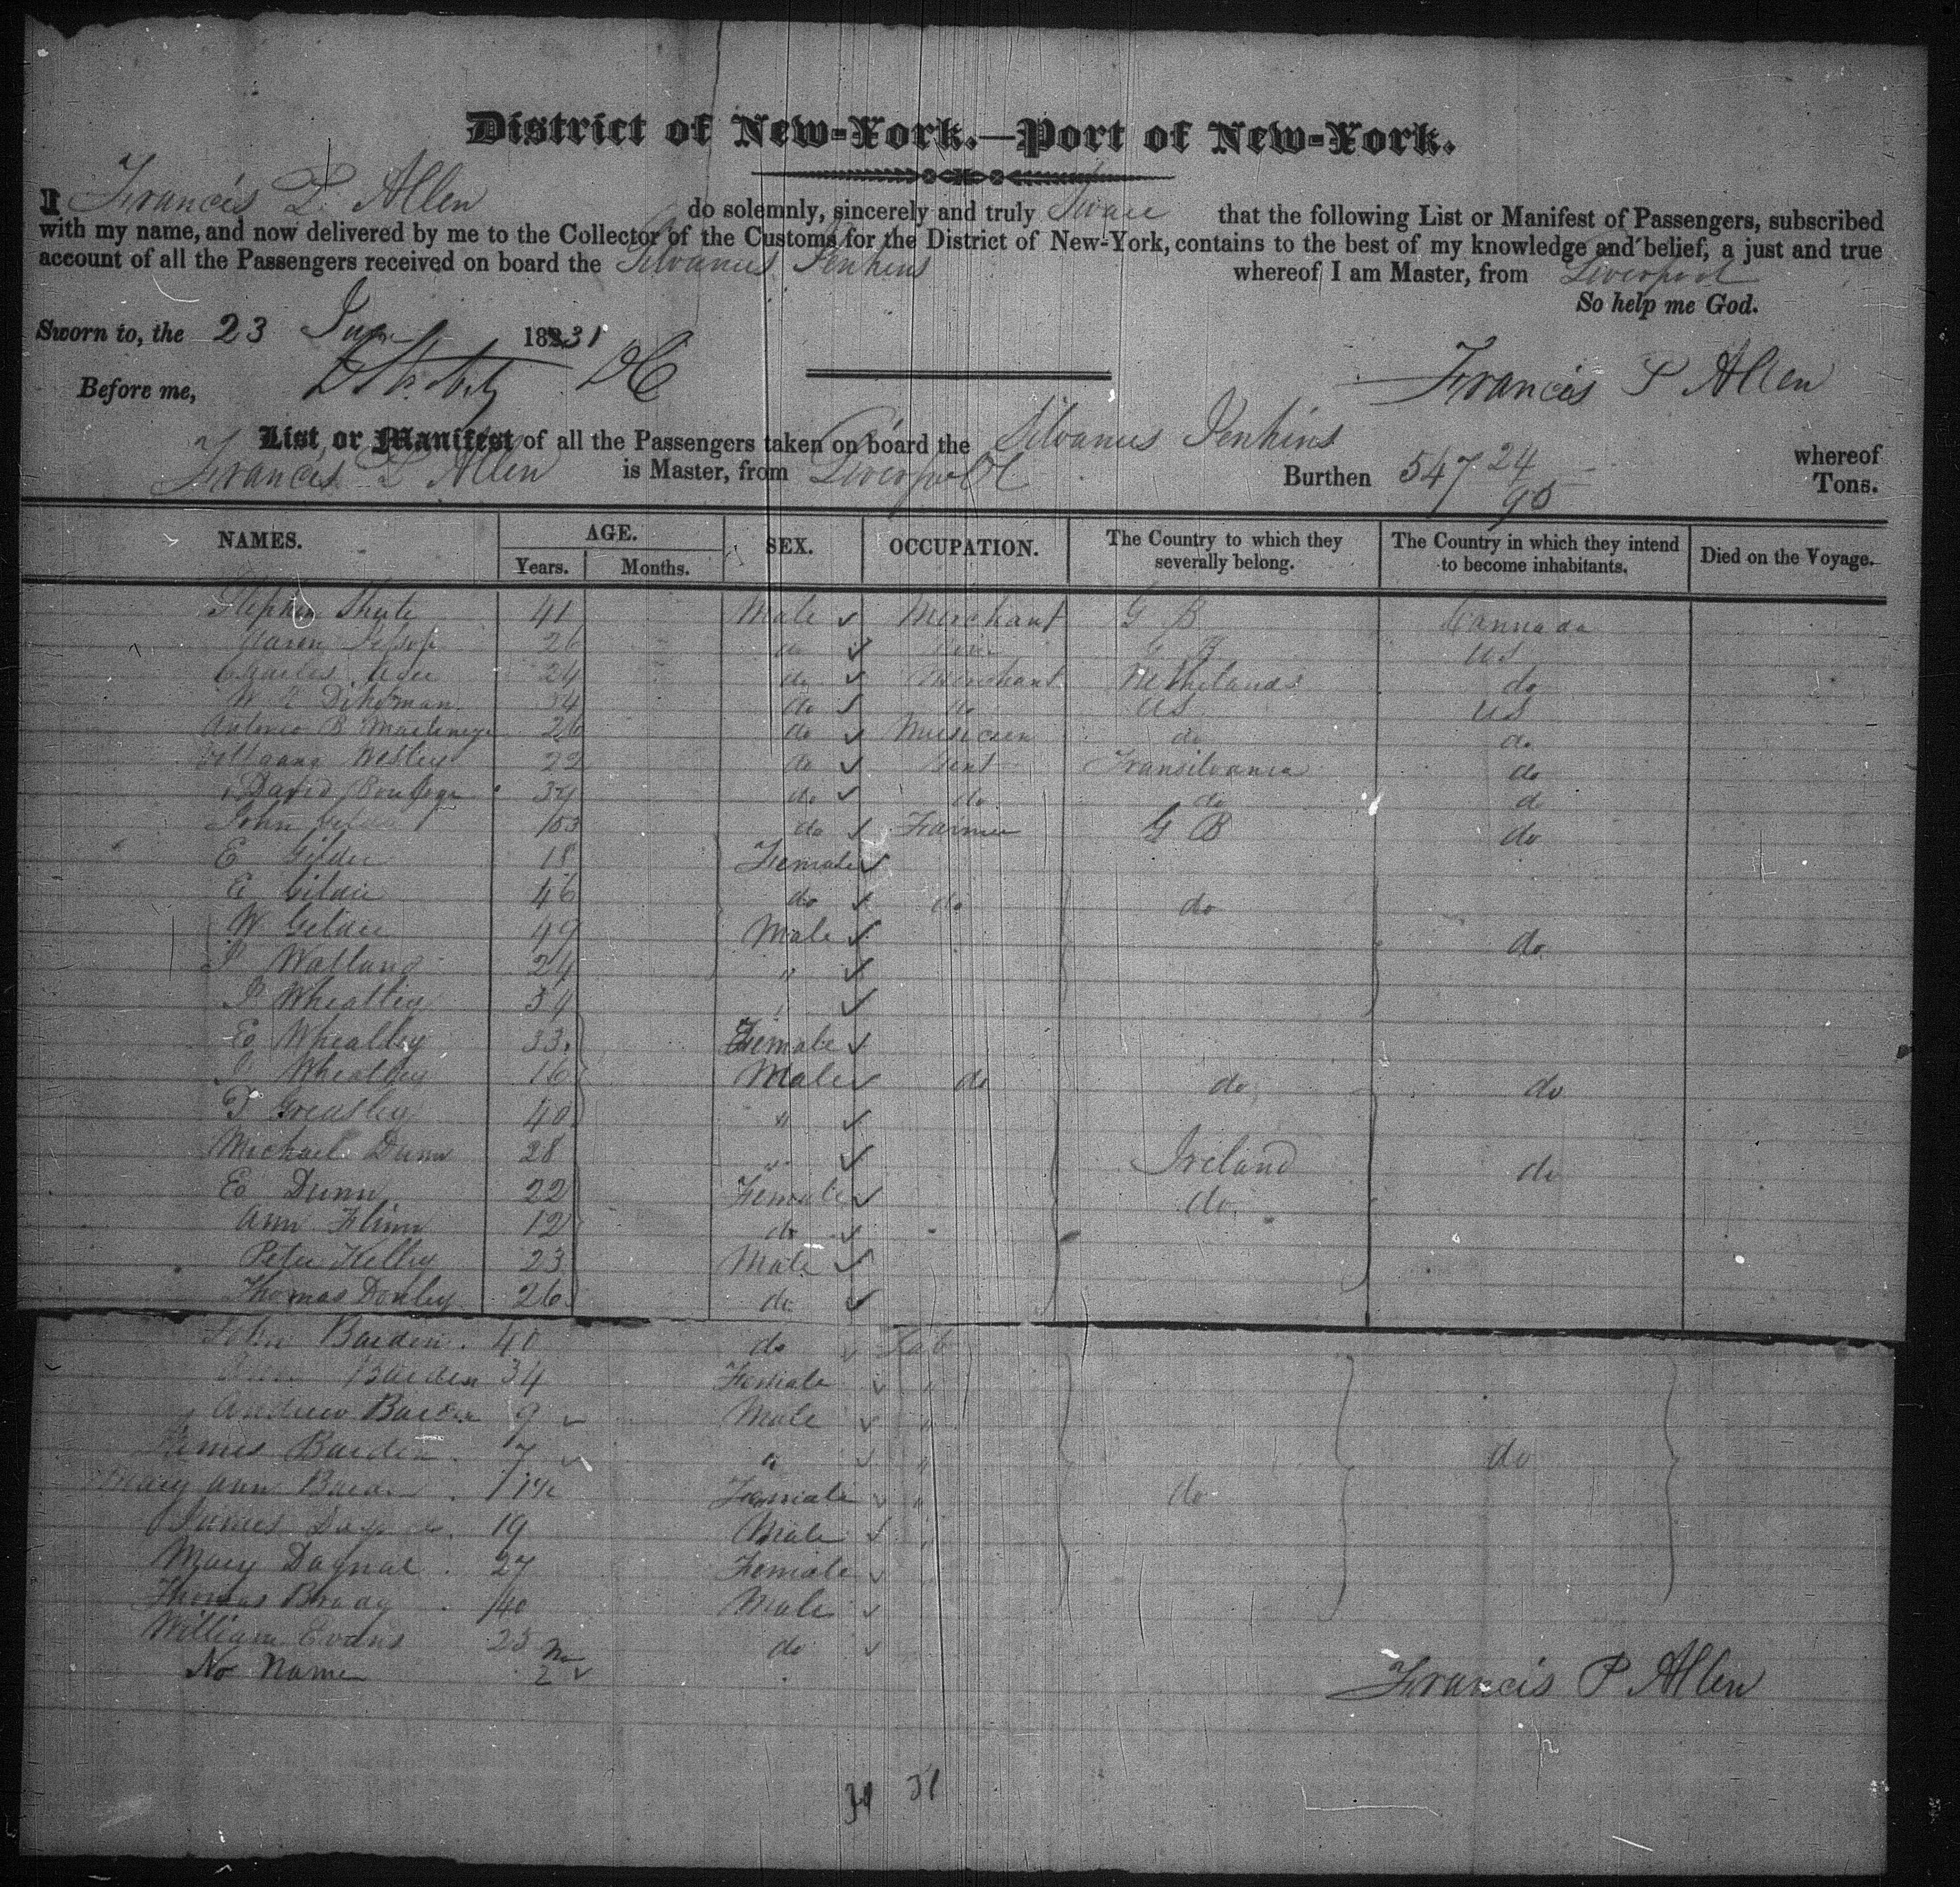 District of New-York.—Port of New-York.
I Francis P Allen do solemnly, sincerely and truly Swear that the following List or Manifest of Passengers, subscribed
with my name, and now delivered by me to the Collector of the Customs for the District of New-York, contains to the best of my knowledge and belief, a just and true
account of all the Passengers received on board the Silvanus Jenkins whereof I am Master, from Liverpool
So help me God.
Sworn to, the 23 1831
Before me, DC Francis P Allen
List or Manifest of all the Passengers taken on board the Silvanus Jenkins whereof
Francis P Allen is Master, from Liverpool Burthen 547 24/95 Tons.
NAMES. AGE. SEX. OCCUPATION. The Country to which they severally belong. The Country in which they intend to become inhabitants. Died on the Voyage.
Years. Months.
Stephen Shute 41 Male Merchant G B Cannada
26 do G B US
Charles 24 do Merchant Netherlands do
54 do do US US
Antonio B 26 do Musician do do
Wesley 22 do Gent Transilvania do
David 34 do do do do
John 53 do Farmer G B do
E Gilder 18 Female
E Gilder 46 do do do
W Gilder 49 Male do
Walland 24 "
Wheatley 34 "
E Wheatley 33 Female
Wheatley 16 Male do do do
T Greatley 40 "
Michael Dunn 28 " Ireland do
E Dunn 22 Female do
Ann Flinn 12 do
Peter Kelley 23 Male
Thomas Donley 26 do
John Barden 40 do Lab
Barden 34 Female "
Andrew Barden 9 Male "
James Barden 7 " "
Mary Ann Barden Female " do do
James 19 Male "
Mary Dagnal 27 Female "
Thomas Brady 40 Male
William Evans 25 do
No Name 2
Francis P Allen
31